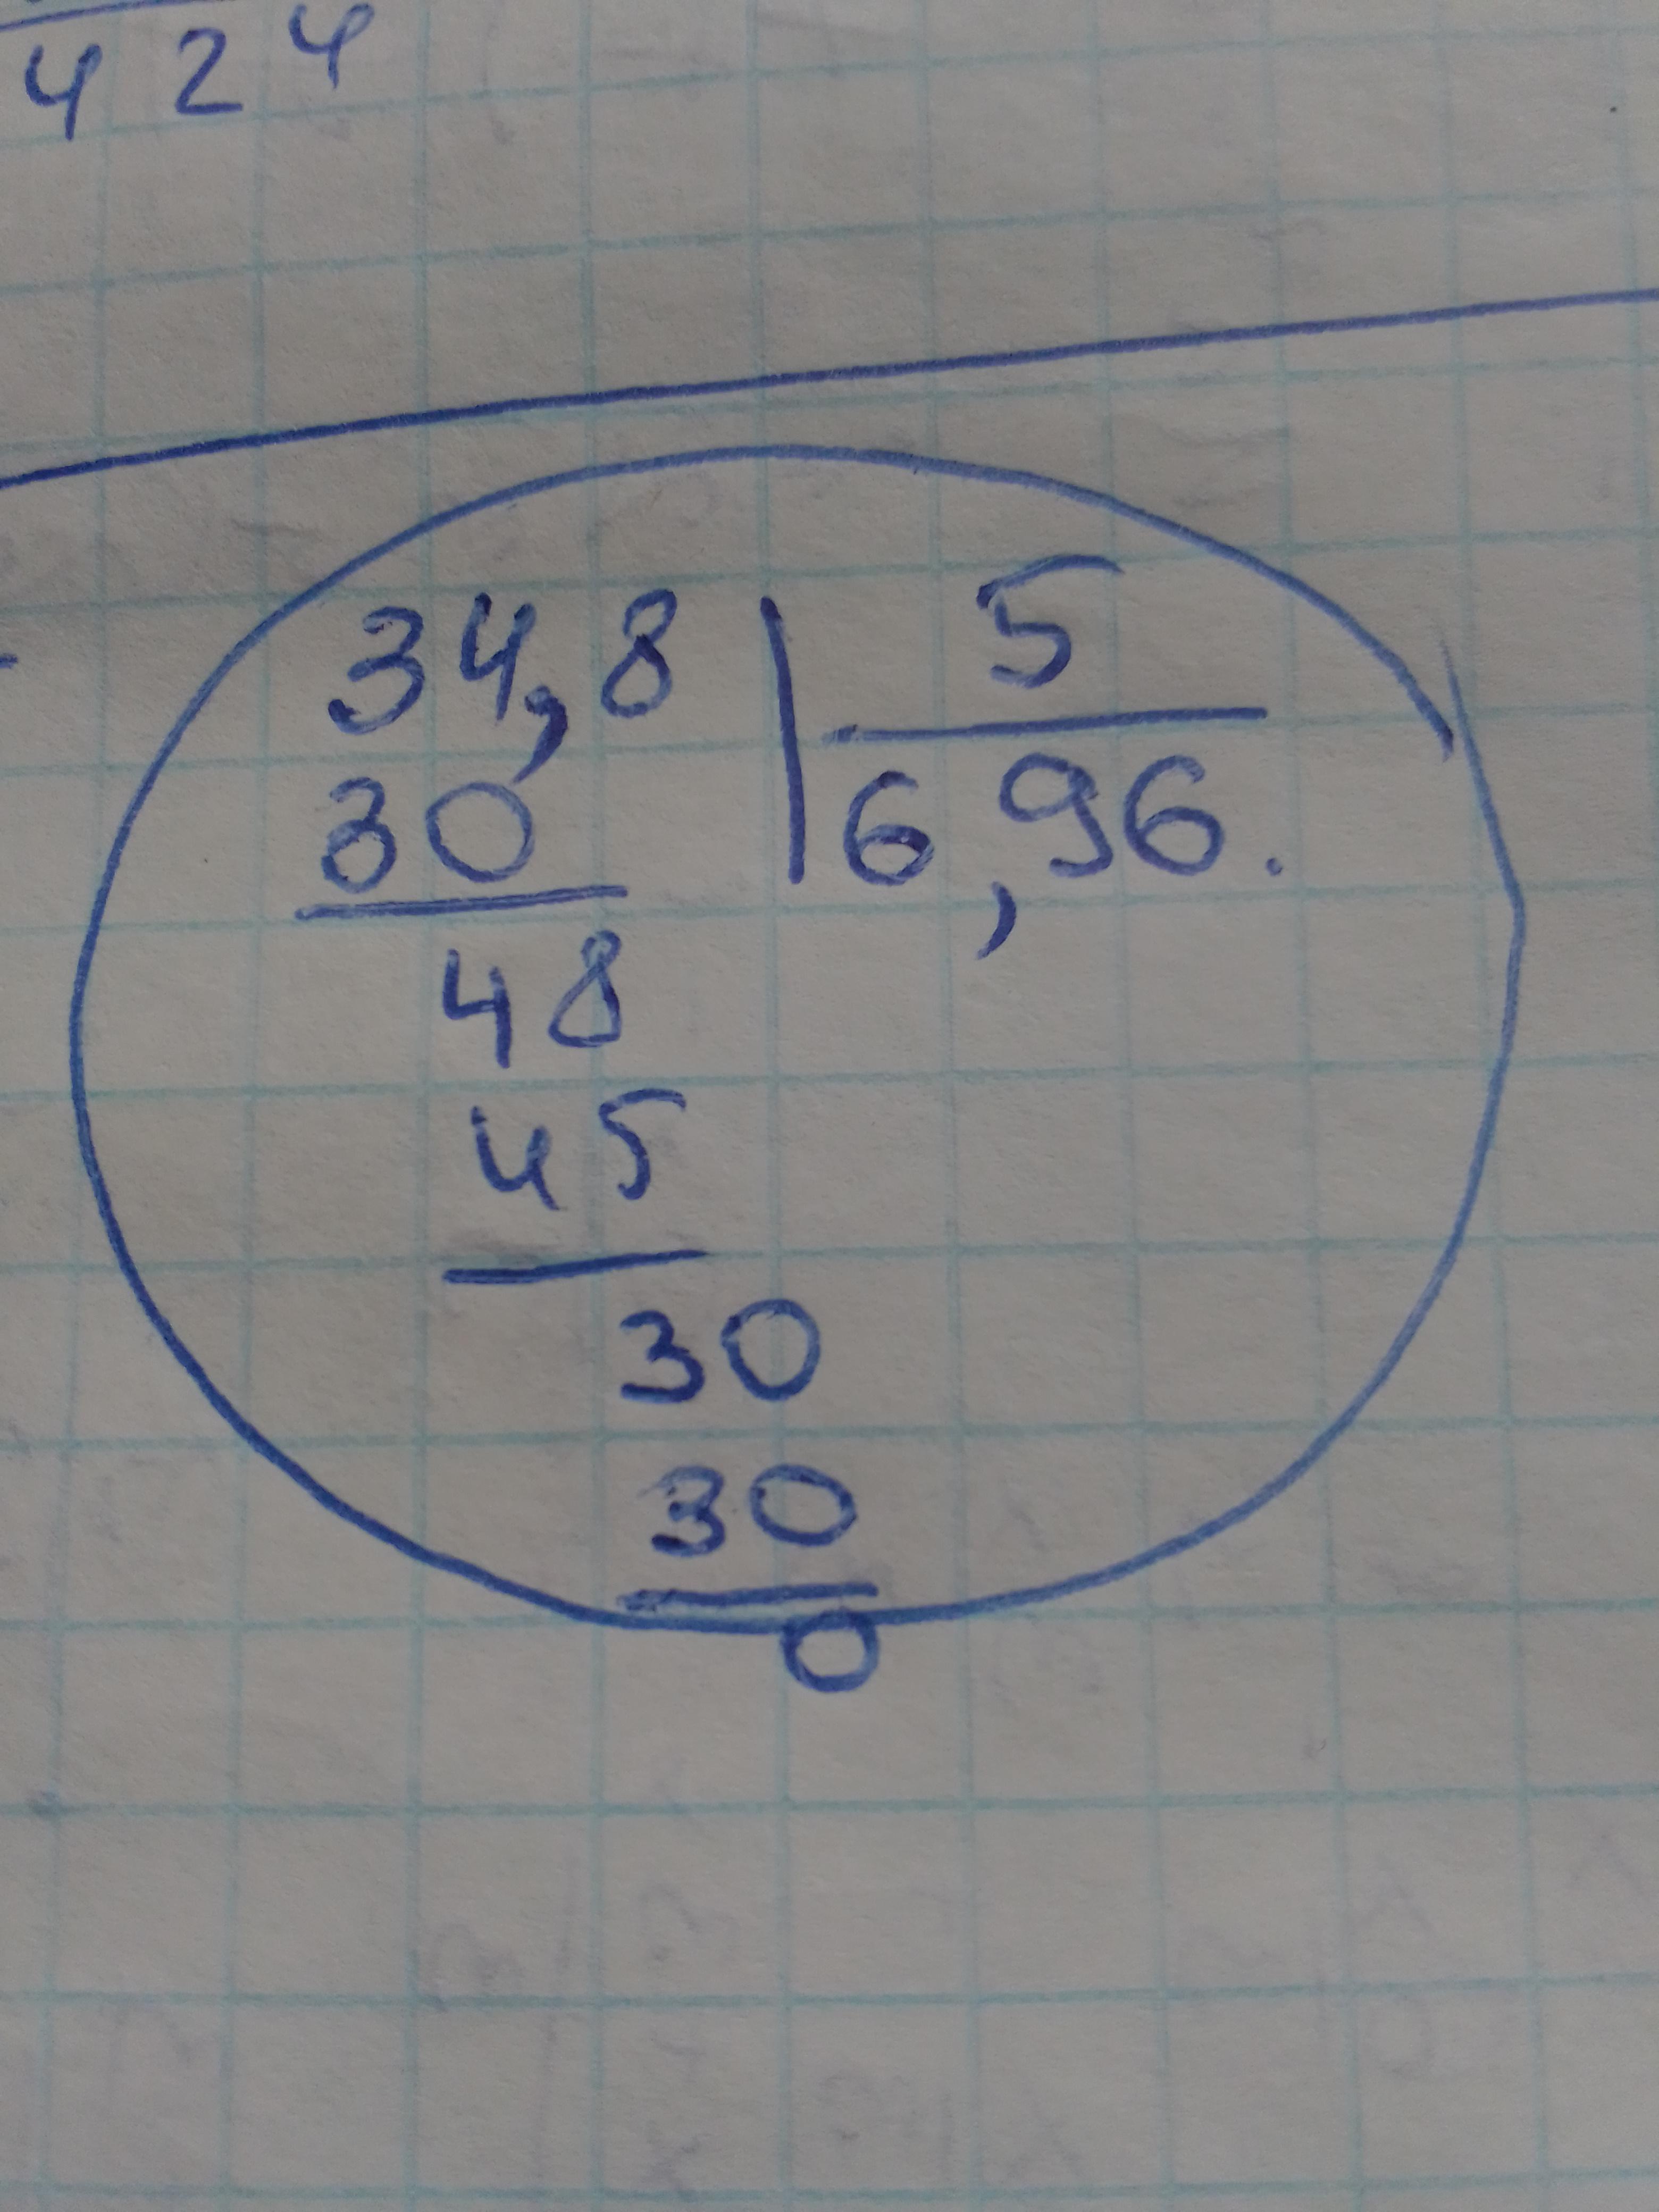 424
34,8 5
30 6,96.
48
45
30
30
0